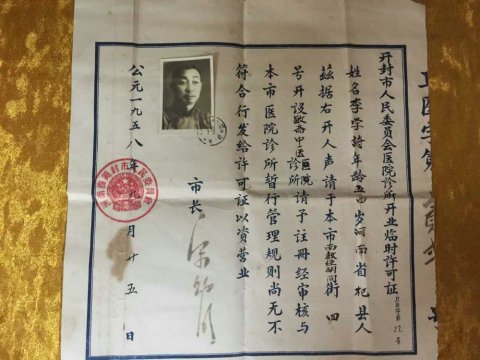 开封市人民委员会医院诊所开业临时许可证
姓名李学詩年龄五四岁河南省杞县人
兹据右开人声请于本市南教经胡同街四
号开设中医医院诊所请予注册经审核与
本市医院诊所暂行管理规则尚无不
符合行发给许可证以资营业
市长
公元一九五八年九月廿五日